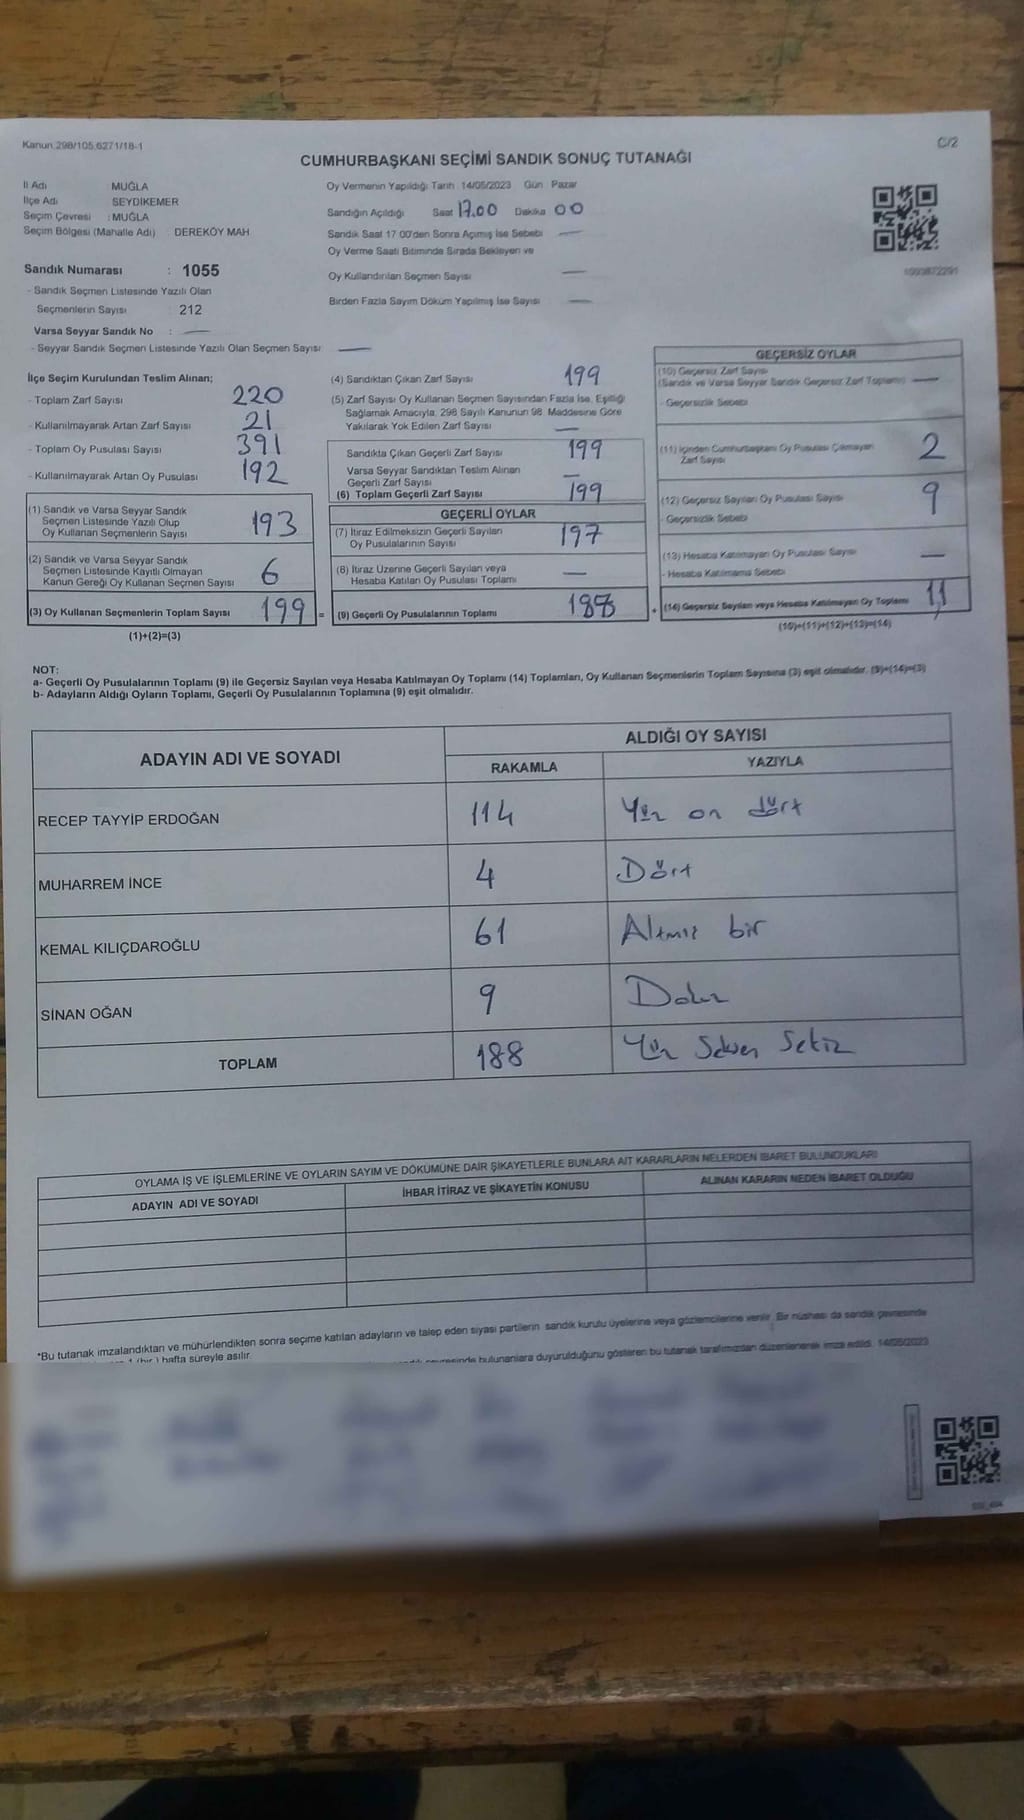 Kanun.298/105,6271/18-1
C/2
CUMHURBAŞKANI SEÇİMİ SANDIK SONUÇ TUTANAĞI
İl Adı MUĞLA
İlçe Adı SEYDİKEMER
Seçim Çevresi : MUĞLA
Seçim Bölgesi (Mahalle Adı) : DEREKÖY MAH
Sandık Numarası : 1055
- Sandık Seçmen Listesinde Yazılı Olan
Seçmenlerin Sayısı : 212
Varsa Seyyar Sandık No : —
- Seyyar Sandık Seçmen Listesinde Yazılı Olan Seçmen Sayısı —
Oy Vermenin Yapıldığı Tarih : 14/05/2023 Gün : Pazar
Sandığın Açıldığı Saat 17.00 Dakika 00
Sandık Saat 17:00'den Sonra Açımış İse Sebebi —
Oy Verme Saati Bitiminde Sırada Bekleyen ve
Oy Kullandırılan Seçmen Sayısı —
Birden Fazla Sayım Döküm Yapılmış İse Sayısı —
1093872291
İlçe Seçim Kurulundan Teslim Alınan;
- Toplam Zarf Sayısı 220
- Kullanılmayarak Artan Zarf Sayısı 21
- Toplam Oy Pusulası Sayısı 391
- Kullanılmayarak Artan Oy Pusulası 192
(1) Sandık ve Varsa Seyyar Sandık
Seçmen Listesinde Yazılı Olup
Oy Kullanan Seçmenlerin Sayısı 193
(2) Sandık ve Varsa Seyyar Sandık
Seçmen Listesinde Kayıtlı Olmayan
Kanun Gereği Oy Kullanan Seçmen Sayısı 6
(3) Oy Kullanan Seçmenlerin Toplam Sayısı 199 =
(1)+(2)=(3)
(4) Sandıktan Çıkan Zarf Sayısı 199
(5) Zarf Sayısı Oy Kullanan Seçmen Sayısından Fazla İse, Eşitliği
Sağlamak Amacıyla, 298 Sayılı Kanunun 98. Maddesine Göre
Yakılarak Yok Edilen Zarf Sayısı —
Sandıkta Çıkan Geçerli Zarf Sayısı 199
Varsa Seyyar Sandıktan Teslim Alınan
Geçerli Zarf Sayısı —
(6) Toplam Geçerli Zarf Sayısı 199
GEÇERLİ OYLAR
(7) İtiraz Edilmeksizin Geçerli Sayılan
Oy Pusulalarının Sayısı 197
(8) İtiraz Üzerine Geçerli Sayılan veya
Hesaba Katılan Oy Pusulası Toplamı —
(9) Geçerli Oy Pusulalarının Toplamı 188 +
GEÇERSİZ OYLAR
(10) Geçersiz Zarf Sayısı
(Sandık ve Varsa Seyyar Sandık Geçersiz Zarf Toplamı) —
- Geçersizlik Sebebi
(11) İçinden Cumhurbaşkanı Oy Pusulası Çıkmayan
Zarf Sayısı 2
(12) Geçersiz Sayılan Oy Pusulası Sayısı 9
- Geçersizlik Sebebi
(13) Hesaba Katılmayan Oy Pusulası Sayısı —
- Hesaba Katılmama Sebebi
(14) Geçersiz Sayılan veya Hesaba Katılmayan Oy Toplamı 11
(10)+(11)+(12)+(13)=(14)
NOT:
a- Geçerli Oy Pusulalarının Toplamı (9) ile Geçersiz Sayılan veya Hesaba Katılmayan Oy Toplamı (14) Toplamları, Oy Kullanan Seçmenlerin Toplam Sayısına (3) eşit olmalıdır. (9)+(14)=(3)
b- Adayların Aldığı Oyların Toplamı, Geçerli Oy Pusulalarının Toplamına (9) eşit olmalıdır.
ADAYIN ADI VE SOYADI
ALDIĞI OY SAYISI
RAKAMLA YAZIYLA
RECEP TAYYİP ERDOĞAN 114 Yüz on dört
MUHARREM İNCE 4 Dört
KEMAL KILIÇDAROĞLU 61 Altmış bir
SİNAN OĞAN 9 Dokuz
TOPLAM 188 Yüz Seksen Sekiz
OYLAMA İŞ VE İŞLEMLERİNE VE OYLARIN SAYIM VE DÖKÜMÜNE DAİR ŞİKAYETLERLE BUNLARA AİT KARARLARIN NELERDEN İBARET BULUNDUKLARI
ADAYIN ADI VE SOYADI İHBAR İTİRAZ VE ŞİKAYETİN KONUSU ALINAN KARARIN NEDEN İBARET OLDUĞU
*Bu tutanak imzalandıktan ve mühürlendikten sonra seçime katılan adayların ve talep eden siyasi partilerin sandık kurulu üyelerine veya gözlemcilerine verilir. Bir nüshası da sandık çevresinde
1 (bir) hafta süreyle asılır.
çevresinde bulunanlara duyurulduğunu gösteren bu tutanak tarafımızdan düzenlenerek imza edildi. 14/05/2023